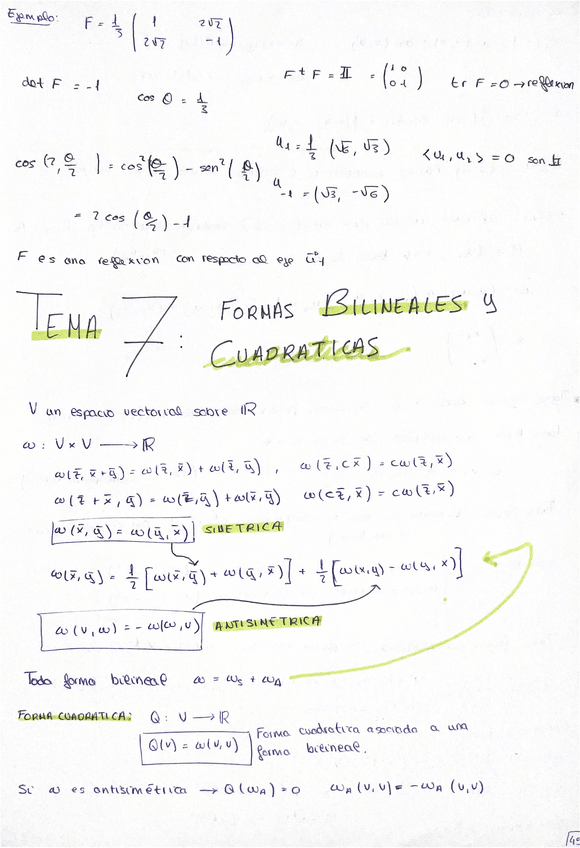 Ejemplo: F = 1/3 ( 1 2√2 ; 2√2 -1 )
det F = -1 cos θ = 1/3 F t F = II = ( 1 0 ; 0 1 ) tr F = 0 → reflexion
u1 = 1/3 (√6, √3) <u1, u2> = 0 son ⊥
cos (2, θ/2 ) = cos²(θ/2) - sen²(θ/2) u-1 = (√3, -√6)
= 2 cos (θ/2) - 1
F es una reflexion con respecto al eje u-1
TEMA 7: FORMAS BILINEALES y
CUADRATICAS
V un espacio vectorial sobre IR
ω: V x V → IR
ω(z̄, x̄+ȳ) = ω(z̄, x̄) + ω(z̄, ȳ) , ω(z̄, c x̄) = cω(z̄, x̄)
ω(z̄ + x̄, ȳ) = ω(z̄, ȳ) + ω(x̄, ȳ) ω(c z̄, x̄) = cω(z̄, x̄)
ω(x̄, ȳ) = ω(ȳ, x̄) SIMETRICA
ω(x̄, ȳ) = 1/2 [ω(x̄, ȳ) + ω(ȳ, x̄)] + 1/2 [ω(x, y) - ω(y, x)]
ω(v, ω) = - ω(ω, v) ANTISIMETRICA
Toda forma bilineal ω = ωs + ωA
FORMA CUADRATICA: Q: V → IR
Q(v) = ω(v, v) Forma cuadratica asociada a una
forma bilineal.
Si ω es antisimétrica → Q(ωA) = 0 ωA (v, v) = - ωA (v, v)